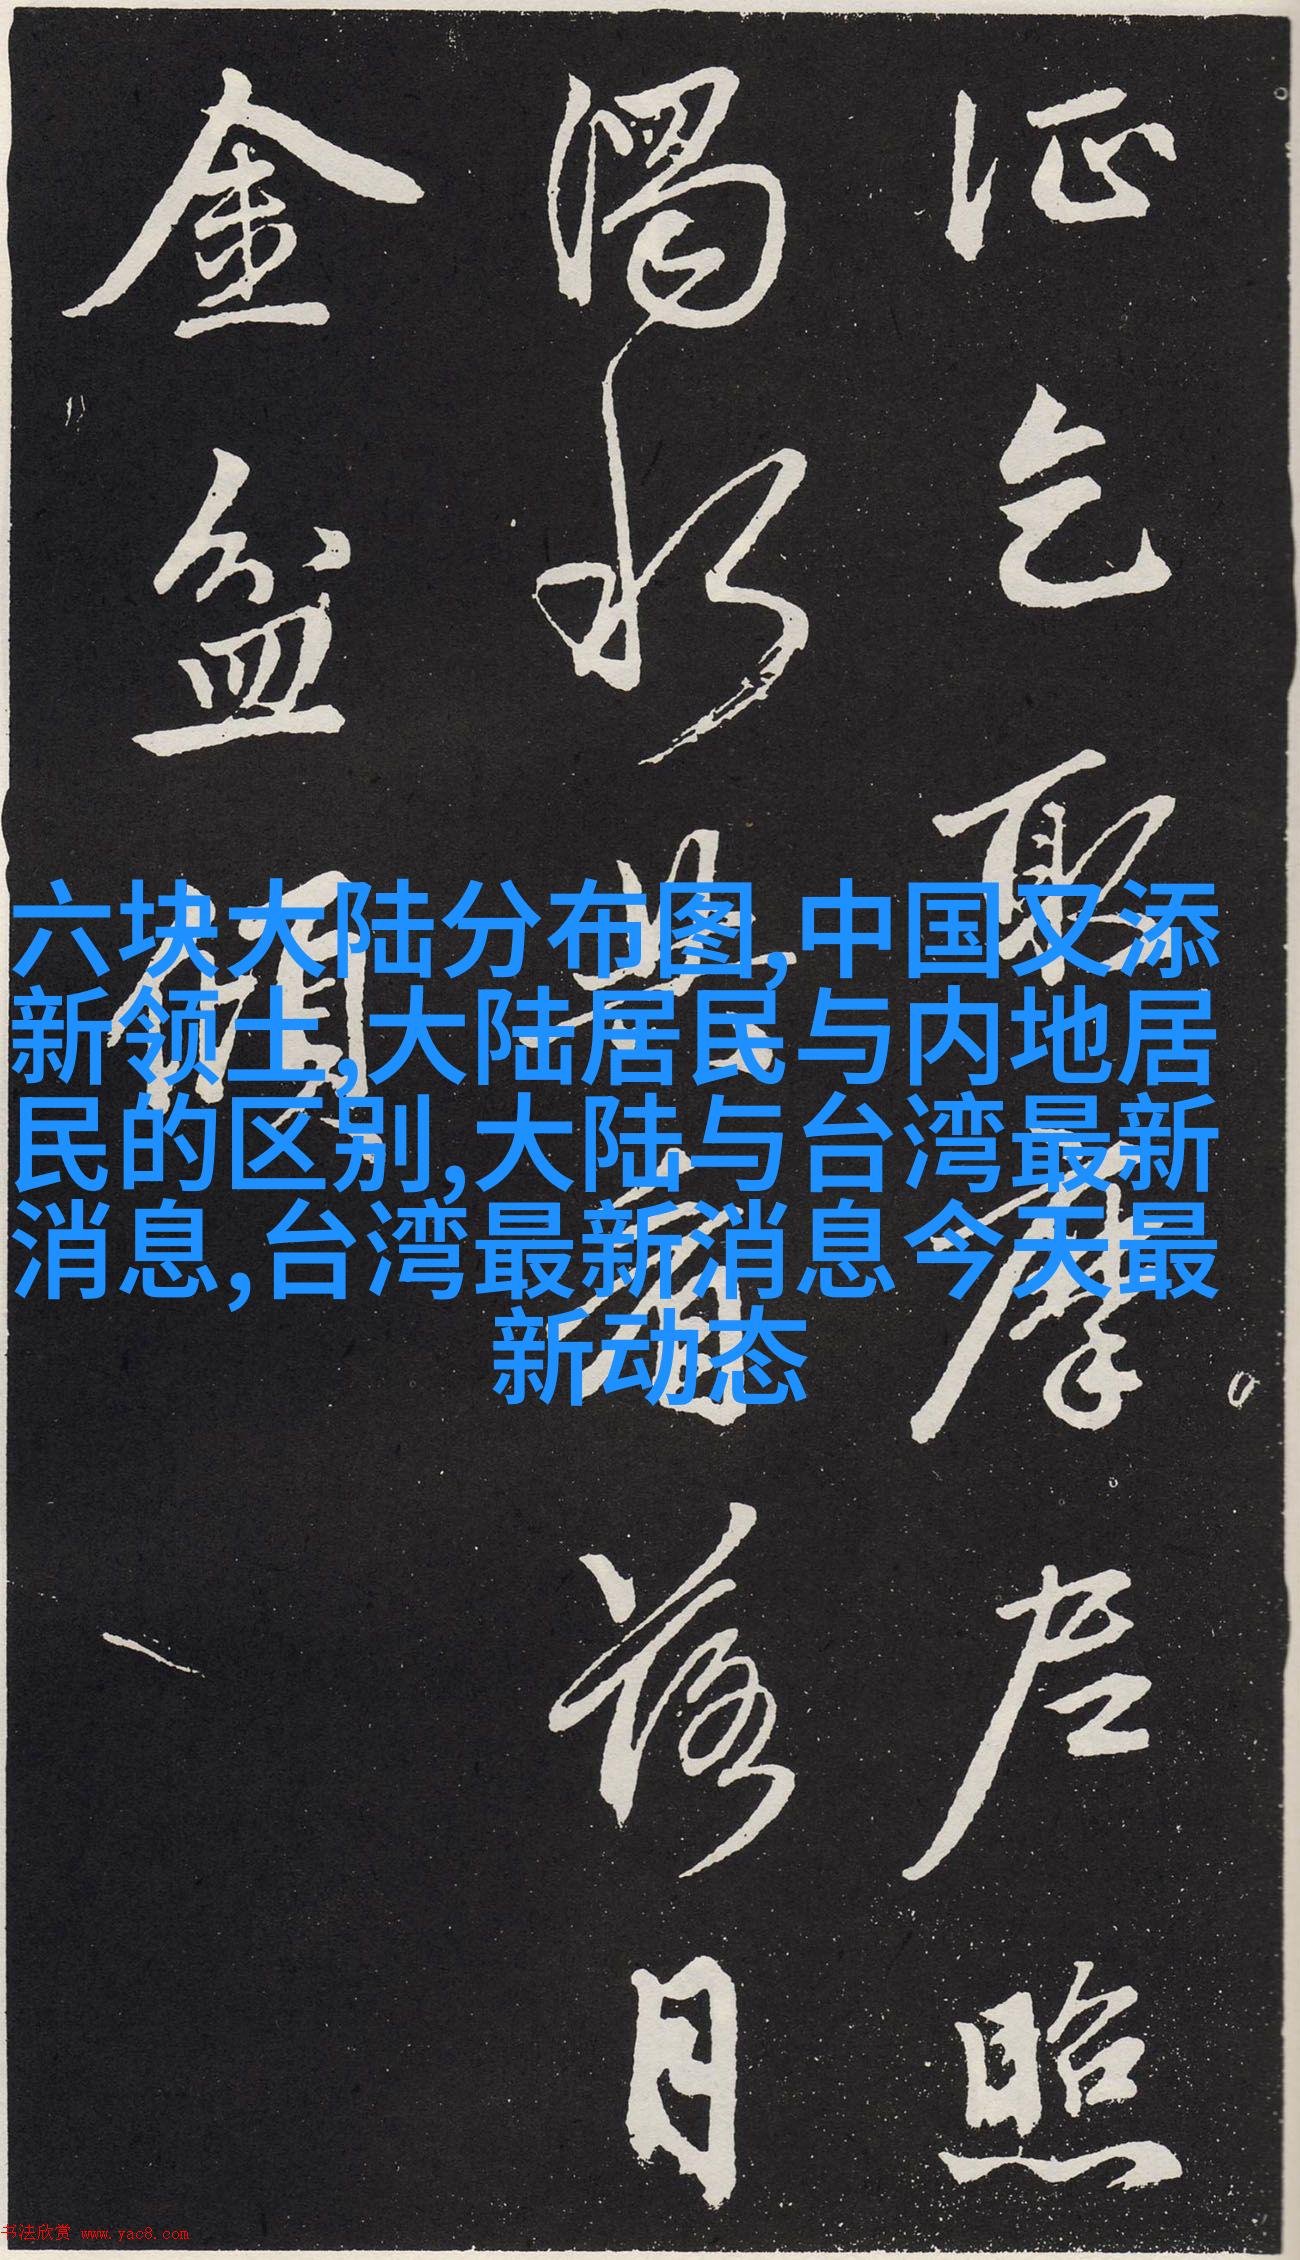 乞取摩尼照
濁水共看落月
金盆傾
六块大陆分布图,中国又添
新领土,大陆居民与内地居
民的区别,大陆与台湾最新
消息,台湾最新消息今天最
新动态
书法欣赏 www.yac8.com